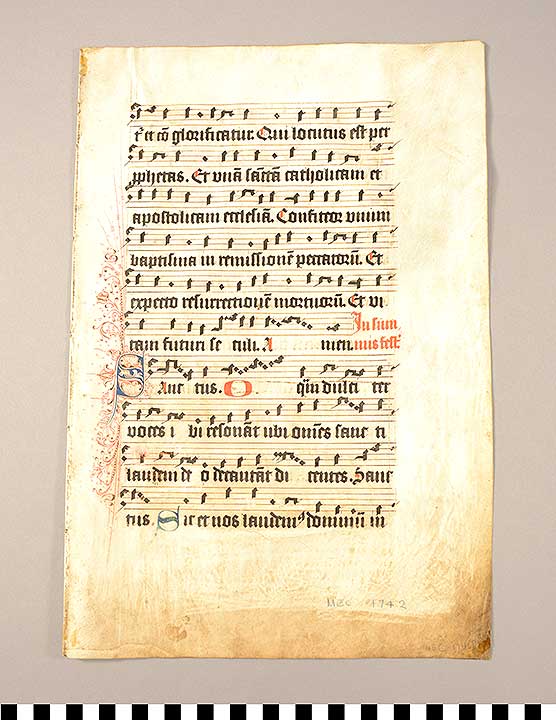 et co͞ glorificatur. Qui locutus est per
prophetas. Et vnã sãctã catholicam et
apostolicam ecclesiã. Confiteor vnum
baptisma in remissionẽ peccatorũ. Et
expecto resurrectionẽ mortuorũ. Et vi
tam futuri se culi. A men. In sum
mis fest
Sanc tus. O q̃m dulci ter
voces i bi resonãt ubi om̃es sanc ti
laudem de o decantãt di centes. Sanc
tus. Sic et nos laudem⁹ dominũ in
MBC 174.2